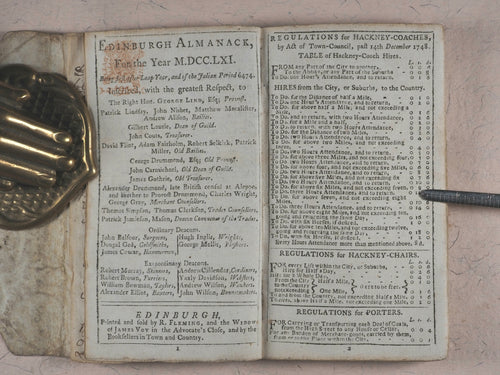 EDINBURGH ALMANACK,
For the Year M.DCC.LXI.
Being first after Leap Year, and of the Julian Period 6474.
Inscribed, with the greatest Respect, to
The Right Hon. GEORGE LIND, Esq; Provost.
Patrick Lindsay, John Nisbet, Matthew Macalister,
Andrew Alison, Bailies.
Gilbert Laurie, Dean of Guild.
John Coutts, Treasurer.
David Flint, Adam Fairholm, Robert Selkirk, Patrick
Miller, Old Bailies.
George Drummond, Esq; Old Provost.
John Carmichael, Old Dean of Guild.
James Guthrie, Old Treasurer.
Alexander Drummond, late British consul at Aleppo,
and brother to Provost Drummond, Charles Wright,
George Gray, Merchant Counsellors.
Thomas Simpson, Thomas Clerkson, Trades Counsellors.
Patrick Jamieson, Mason, Deacon Convener of the Trades.
Ordinary Deacons.
John Balfour, Surgeon,
Dougal Ged, Goldsmiths,
James Cowan, Hammermen,
Hugh Inglis, Wrights,
George Mellis, Waulkers.
Extraordinary Deacons.
Robert Murray, Skinners,
Robert Brown, Furriers,
William Bowman, Taylors,
Alexander Elliot, Baxters,
Andrew Wilson, Weavers,
John Wilson, Bonnetmakers.
EDINBURGH,
Printed and sold by R. FLEMING, and the WIDOW
of JAMES VOY in the Advocate's Close, and by the
Booksellers in Town and Country.
REGULATIONS for HACKNEY-COACHES,
by Act of Town-Council, past 14th December 1748.
TABLE of Hackney-Coach Hires.
FROM any Part of the City to another,
To the Abbay, or any Part of the Suburbs
Do. one Hour's Attendance, and to return,
HIRES from the City, or Suburbs, to the Country.
To Do. for Distance of half a Mile,
To Do. one Hour's Attendance, and to return,
To Do. for above half a Mile, and not exceeding a
Mile,
To Do. to return, with two Hours Attendance,
To Do. for a Mile and a half,
To Do. to return, with two Hours Attendance,
To Do. for the Distance of two Miles,
To Do. two Hours Attendance, and to return,
To Do. for above two Miles, and not exceeding
three,
To Do. two Hours Attendance, and to return,
To Do. for above three Miles, and not exceeding four,
To Do. two Hours Attendance, and to return,
To Do. for above four Miles, and not exceeding five
To Do. two Hours Attendance, and to return,
To Do. for above five Miles, and not exceeding six
To Do. two Hours Attendance, and to return,
To Do. for above six Miles, and not exceeding seven,
To Do. three Hours Attendance, and to return,
To Do. for above seven, and not exceeding eight
Miles,
To Do. three Hours Attendance, and to return,
To Do. for above eight Miles, and not exceeding ten,
going and returning the same Day,
To Do. with six Horses, if desired,
To Do. for above ten Miles, and not exceeding twelve,
going and returning the same Day,
To Do. with six Horses, if desired,
Every Hours Attendance more than mentioned above, 8d.
REGULATIONS for HACKNEY-CHAIRS.
FOR every Lift within the City, or Suburbs,
Hire for Half a Day,
For a whole Day,
From the City
to the Country
not exceeding
Half a Mile,
One Mile,
To and from the Country, not exceeding Half a Mile,
Ditto, not exceeding one Mile,
REGULATIONS for PORTERS.
FOR Carrying or Transporting each Deal of Coals,
from the High Street to any House or Cellar,
For any Burden of Merchant-goods, carried by them,
from or to any Place within the City,